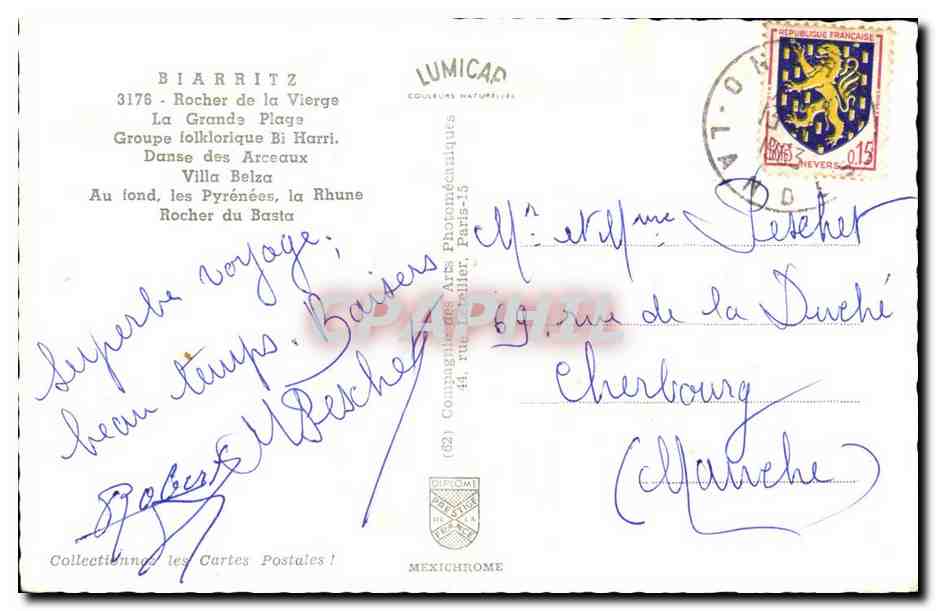 BIARRITZ
3176 - Rocher de la Vierge
La Grande Plage
Groupe folklorique Bi Harri.
Danse des Arceaux
Villa Belza
Au fond, les Pyrénées, la Rhune
Rocher du Basta
Superbe voyage,
beau temps. Baisers
Robert M Peschet
Collectionnez les Cartes Postales !
LUMICAP
COULEURS NATURELLES
(62) Compagnie des Arts Photomécaniques
44, rue Letellier, Paris-15
DIPLOME
PRESTIGE
DE LA
FRANCE
MEXICHROME
REPUBLIQUE FRANÇAISE
POSTES
NEVERS
0,15
Mr et Mme Peschet
69, rue de la Duché
Cherbourg
(Manche)
CPAPHIL